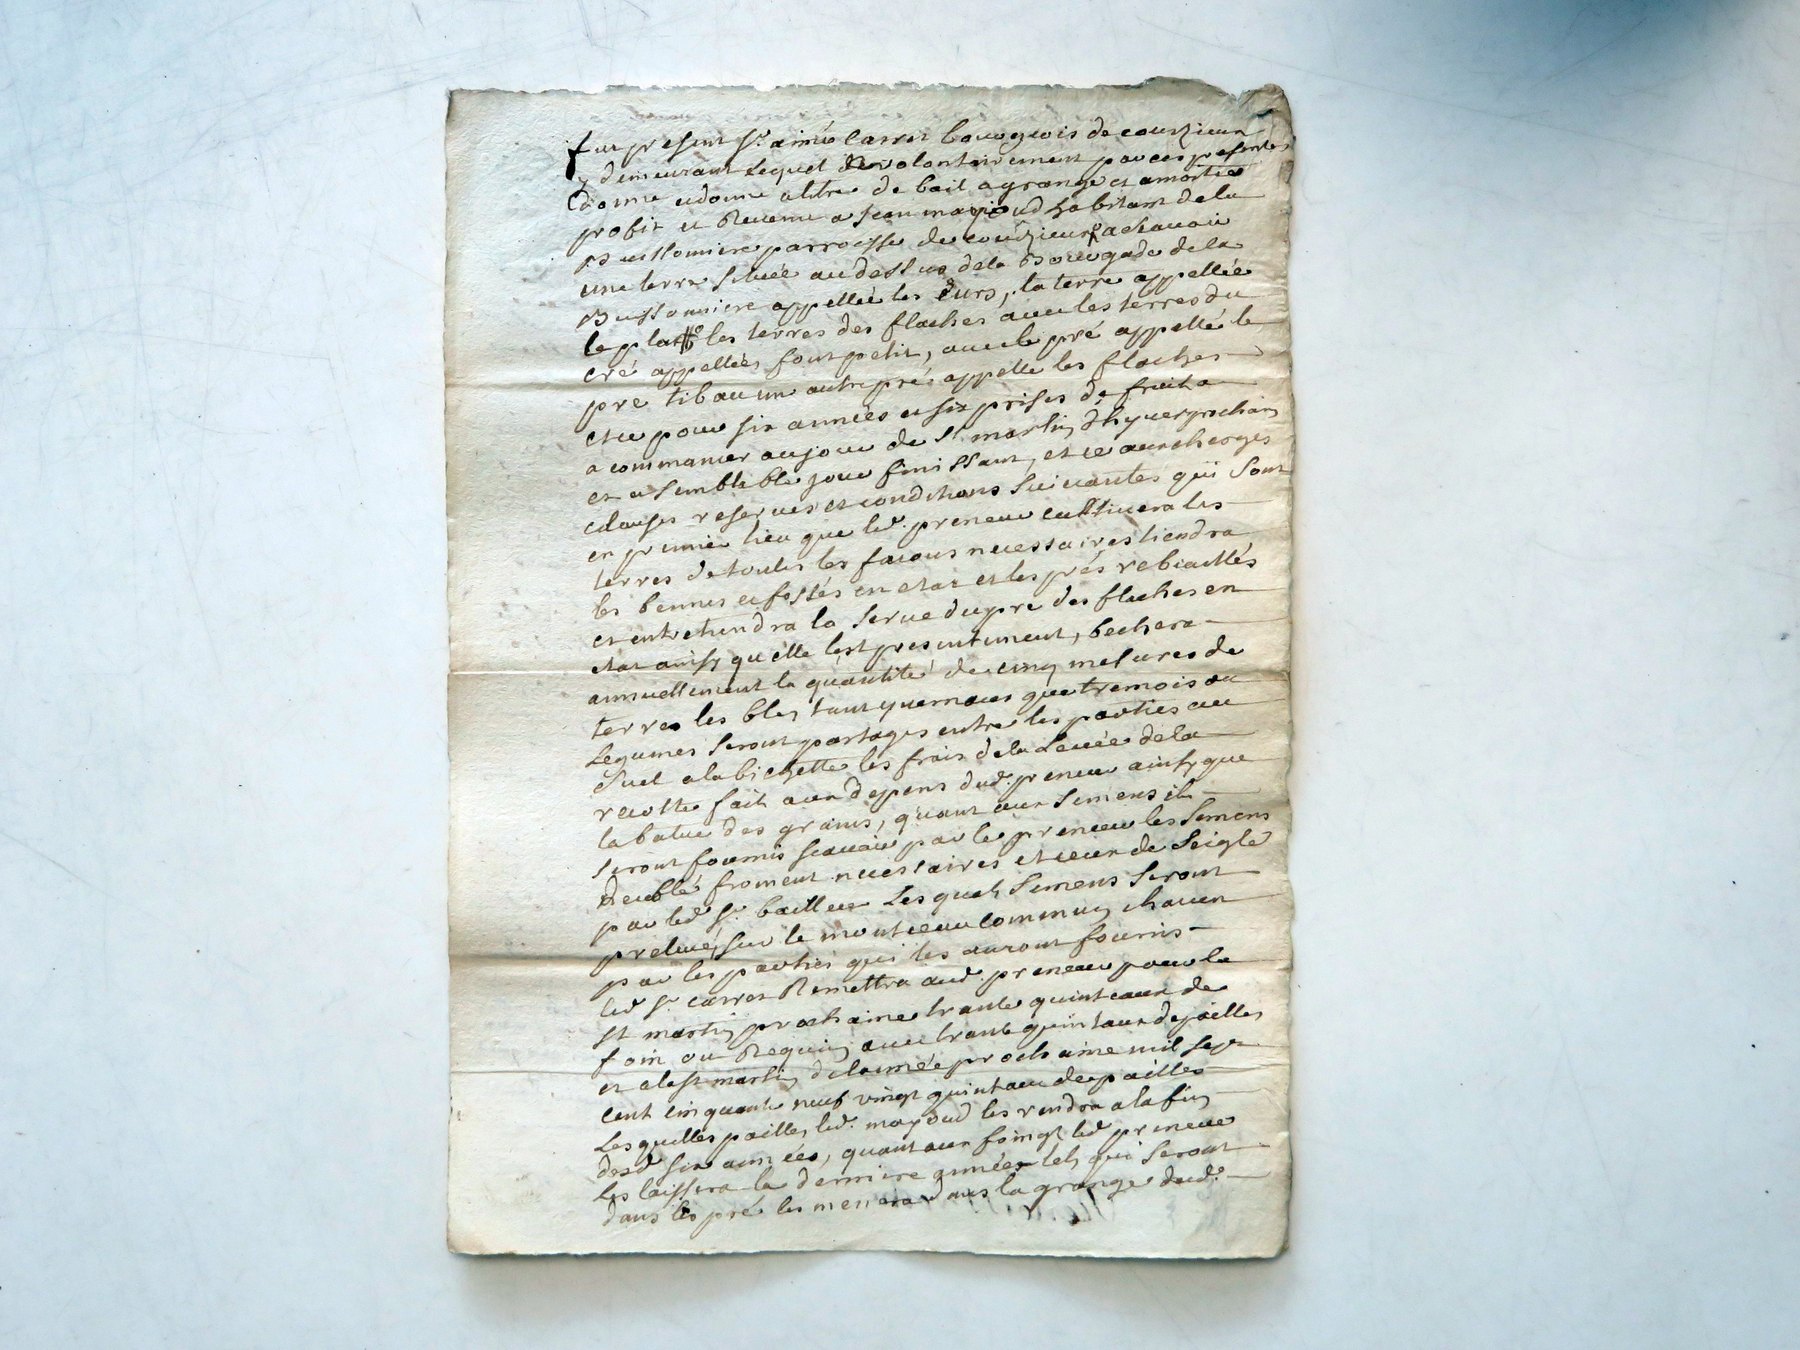 fut present Sr aimé Carret bourgeois de courzieux
y demeurant Lequel de volontairement par ces presentes
donne a titre de bail a grange et amoitie
profit et Revenu a Jean mayoud habitant de la
Buissonniere parroisse de courzieux a scavoir
une terre située au dessus de la Bourgade de la
Buissonniere appellée les Eurs, la terre appellée
le plat les terres des flaches avec les terres du
cré appellées font petit, avec le pré appellé le
pré tibau un autre pré appellé les flaches
et ce pour six années et six prises de fruit a
a commancer au jour de St martin d'hyver prochain
et a semblable jour finissant, et ce aux charges
clauses reserves et conditions suivantes qui sont
en premier lieu que led. preneur cultivera les
terres de toutes les facons necessaires tiendra
les bennes et fossés en etat et les prés rebiaillés
et entretiendra la serve du pré des flaches en
etat ainsy qu'elle l'est presentement, bechera
annuellement la quantité de cinq mesures de
terres les bles tant yvernaux que tremois ou
Legumes seront partages entre les parties au
suel a la bichette les frais de la Levée de la
recolte fait aux depens dud. preneur ainsy que
la batue des grains, quant aux semens ils
seront fournis scavoir par le preneur les semens
de blé froment necessaires et ceux de seigle
par led. Sr. bailleur Lesquels semens seront
prelevés sur le montceau commun chacun
par les parties qui les auront fournis
led. Sr carret Remettra aud. preneur pour la
St martin prochaine trante quinteaux de
foin ou Reguin avec trante quintaux de pailles
et a la St martin de l'année prochaine mil sept
cent cinquante neuf vingt quintaux de pailles
Lesquelles pailles led. mayoud les rendra a la fin
desd. six années, quant aux foings led preneur
les laissera la derniere année tels qui seront
dans les pré les menera dans la grange dud.